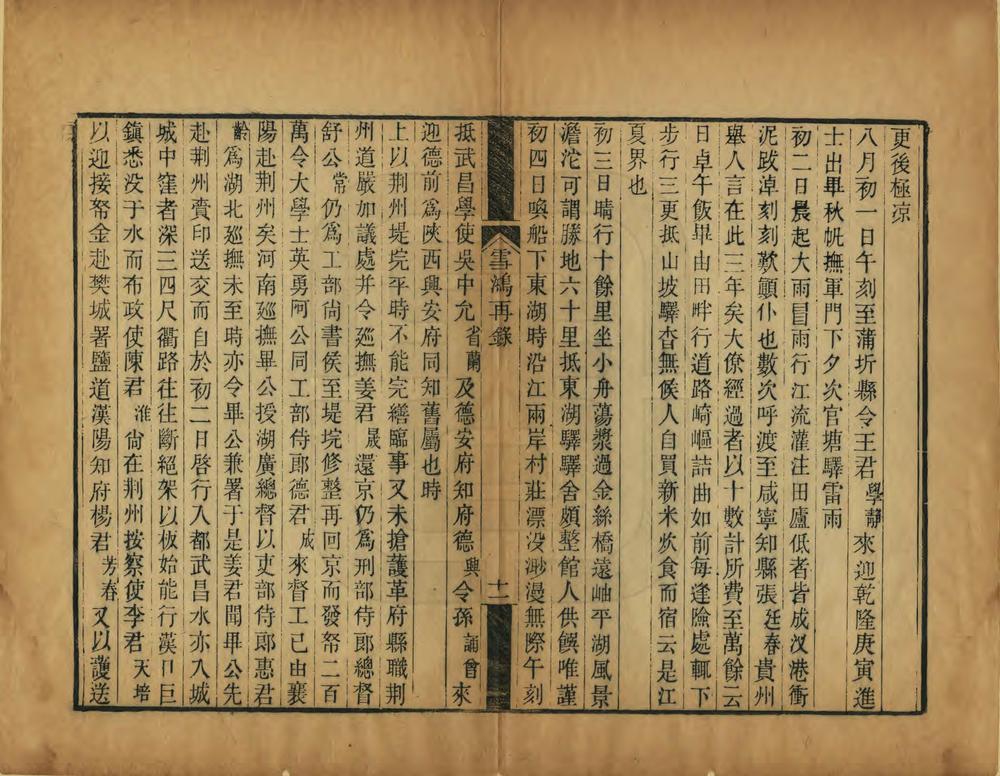 更後極凉
八月初一日午刻至蒲圻縣令王君學靜來迎乾隆庚寅進
士出畢秋帆撫軍門下夕次官塘驛雷雨
初二日晨起大雨冒雨行江流灌注田廬低者皆成汊港衝
泥跋淖刻刻歎顚仆也數次呼渡至咸寧知縣張廷春貴州
舉人言在此三年矣大僚經過者以十數計所費至萬餘云
日卓午飯畢由田畔行道路崎嶇詰曲如前每逢險處輒下
步行三更抵山坡驛杳無候人自買新米炊食而宿云是江
夏界也
初三日晴行十餘里坐小舟蕩漿過金絲橋遠岫平湖風景
澹沱可謂勝地六十里抵東湖驛驛舍頗整館人供饌唯謹
初四日喚船下東湖時沿江兩岸村莊漂没渺漫無際午刻
雪鴻再錄
十一
抵武昌學使吳中允省蘭及德安府知府德興令孫誦曾來
迎德前爲陜西興安府同知舊屬也時
上以荆州堤垸平時不能完繕臨事又未搶護革府縣職荆
州道嚴加議處并令廵撫姜君晟還京仍爲刑部侍郎總督
舒公常仍爲工部尙書侯至堤垸修整再回京而發帑二百
萬令大學士英勇阿公同工部侍郎德君成來督工已由襄
陽赴荆州矣河南廵撫畢公授湖廣總督以吏部侍郎惠君
齡爲湖北廵撫未至時亦令畢公兼署于是姜君聞畢公先
赴荆州賫印送交而自於初二日啓行入都武昌水亦入城
城中窪者深三四尺衢路往往斷絕架以板始能行漢口巨
鎭悉没于水而布政使陳君淮尙在荆州按察使李君天培
以迎接帑金赴樊城署鹽道漢陽知府楊君芳春又以護送